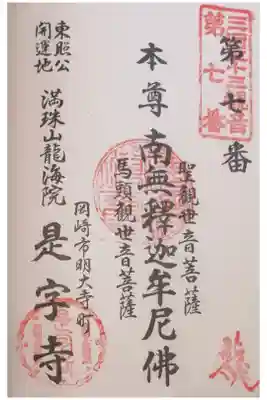 三河三十三観音
第七番
第七番
聖觀世音菩薩
本尊南無釋迦牟尼佛
馬頭觀世音菩薩
岡崎市明大寺町
是字寺
満珠山龍海院
東照公
開運地